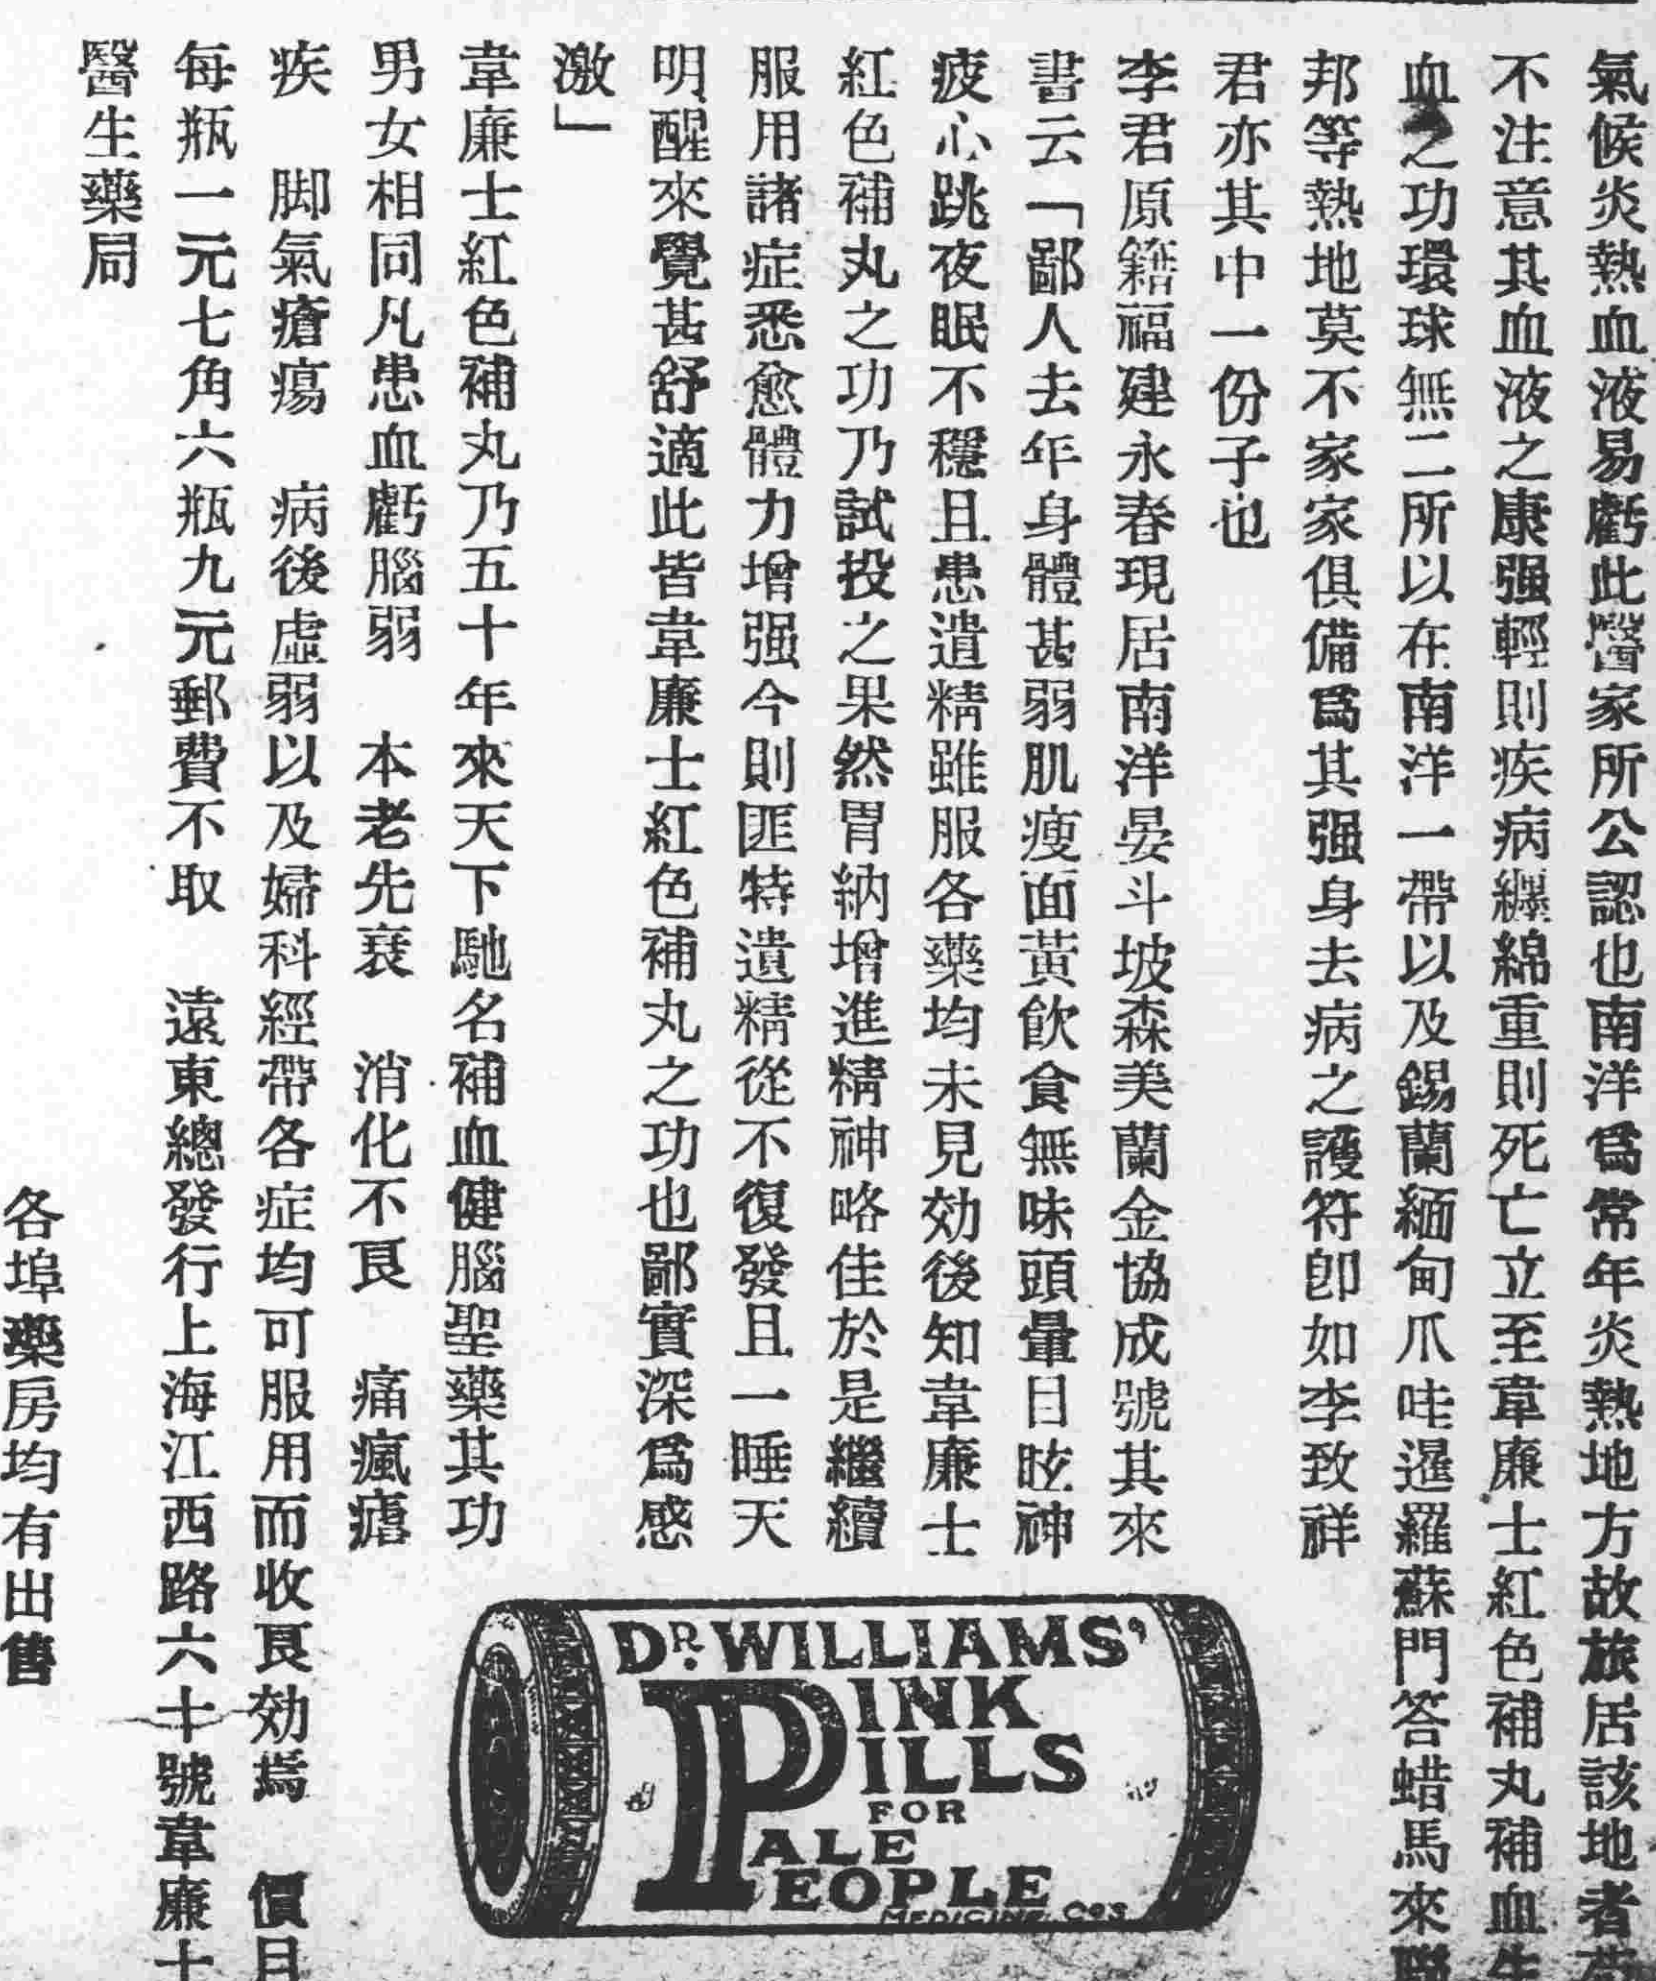 氣候炎熱血液易虧此醫家所公認也南洋爲常年炎熱地方故旅居該地者苟
不注意其血液之康强輕則疾病纏綿重則死亡立至韋廉士紅色補丸補血生
血之功環球無二所以在南洋一帶以及錫蘭緬甸爪哇暹羅蘇門答蜡馬來聯
邦等熱地莫不家家俱備爲其强身去病之護符卽如李致祥
君亦其中一份子也
李君原籍福建永春現居南洋晏斗坡森美蘭金協成號其來
書云「鄙人去年身體甚弱肌瘦面黃飮食無味頭暈目眩神
疲心跳夜眠不穩且患遺精雖服各藥均未見効後知韋廉士
紅色補丸之功乃試投之果然胃納增進精神略佳於是繼續
服用諸症悉愈體力增强今則匪特遺精從不復發且一睡天
明醒來覺甚舒適此皆韋廉士紅色補丸之功也鄙實深爲感
激」
韋廉士紅色補丸乃五十年來天下馳名補血健腦聖藥其功
男女相同凡患血虧腦弱　本老先衰　消化不良　痛瘋瘧
疾　脚氣瘡瘍　病後虛弱以及婦科經帶各症均可服用而收良効焉　價目
每瓶一元七角六瓶九元郵費不取　遠東總發行上海江西路六十號韋廉士
醫生藥局
各埠藥房均有出售
DR. WILLIAMS'
PINK
PILLS
FOR
PALE
PEOPLE
MEDICINE CO'S